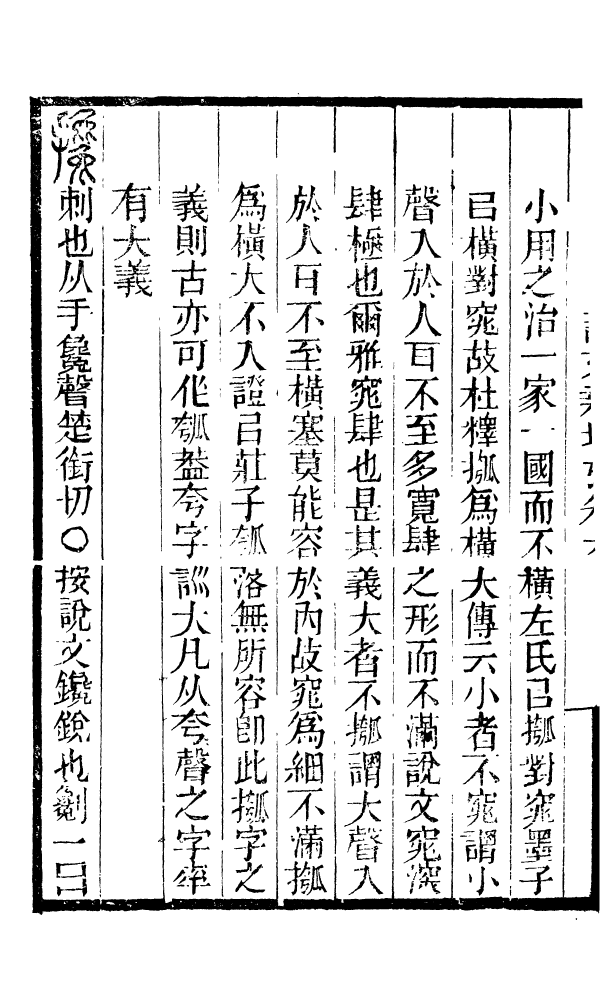 小用之治一家一國而不橫左氏㠯摦對窕墨子
㠯橫對窕故杜釋摦爲橫大傳云小者不窕謂小
聲入於人耳不至多寬肆之形而不滿說文窕深
肆極也爾雅窕肆也是其義大者不摦謂大聲入
於人耳不至橫塞莫能容於內故窕爲細不滿摦
爲橫大不入證㠯莊子瓠落無所容卽此摦字之
義則古亦可作瓠葢夸字訓大凡从夸聲之字率
有大義
攙刺也从手毚聲楚銜切〇按說文鑱銳也劖一曰